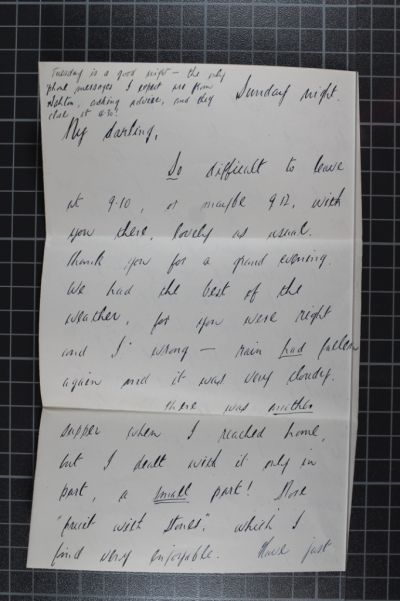 Tuesday is a good night – the only
phone messages I expect are from
Ashton, asking advice, and they
close at 4.30!
Sunday night.
My darling,
So difficult to leave
at 9.10, or maybe 9.12, with
you there, lovely as usual.
Thank you for a grand evening.
We had the best of the
weather, for you were right
and I wrong – rain had fallen
again and it was very cloudy.
There was another
supper when I reached home,
but I dealt with it only in
part, a small part! More
"fruit with stones", which I
find very enjoyable. Have just